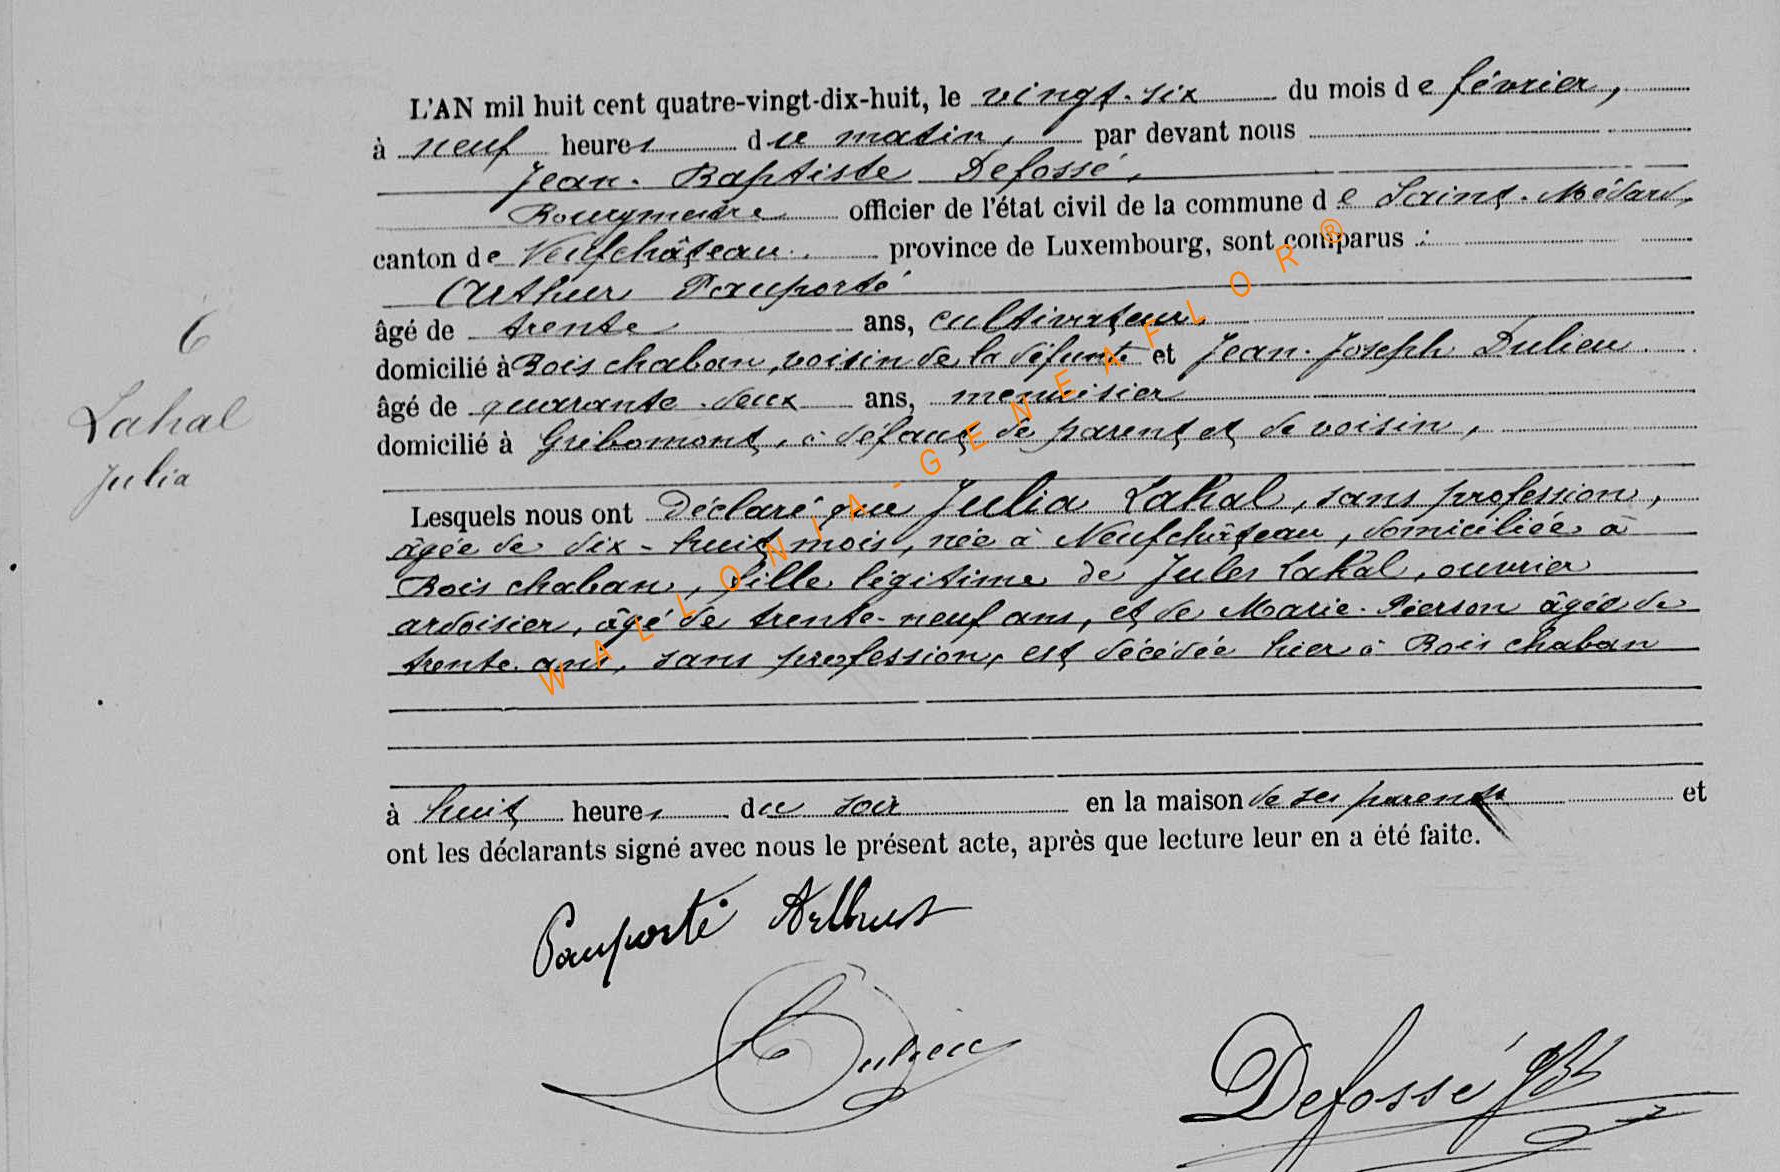 L'AN mil huit cent quatre-vingt-dix-huit, le vingt-six du mois de février,
à neuf heures du matin, par devant nous
Jean-Baptiste Defossé,
Bourgmestre officier de l'état civil de la commune de Saint-Médard,
canton de Neufchâteau. province de Luxembourg, sont comparus :
Arthur Pauporté
âgé de trente ans, cultivateur.
domicilié à Bois chaban, voisin de la défunte et Jean-Joseph Dulieu
âgé de quarante-deux ans, menuisier
domicilié à Gribomont, à défaut de parent et de voisin,
6
Lahal
Julia
Lesquels nous ont Déclaré que Julia Lahal, sans profession,
âgée de dix-huit mois, née à Neufchâteau, domiciliée à
Bois chaban, fille légitime de Jules Lahal, ouvrier
ardoisier, âgé de trente-neuf ans, et de Marie Pierson âgée de
trente ans, sans profession, est décédée hier à Bois chaban
à huit heures du soir en la maison de ses parents et
ont les déclarants signé avec nous le présent acte, après que lecture leur en a été faite.
Pauporté Arthur
Dulieu
Defossé JBt
WALLONIA-GENEAFLOR®